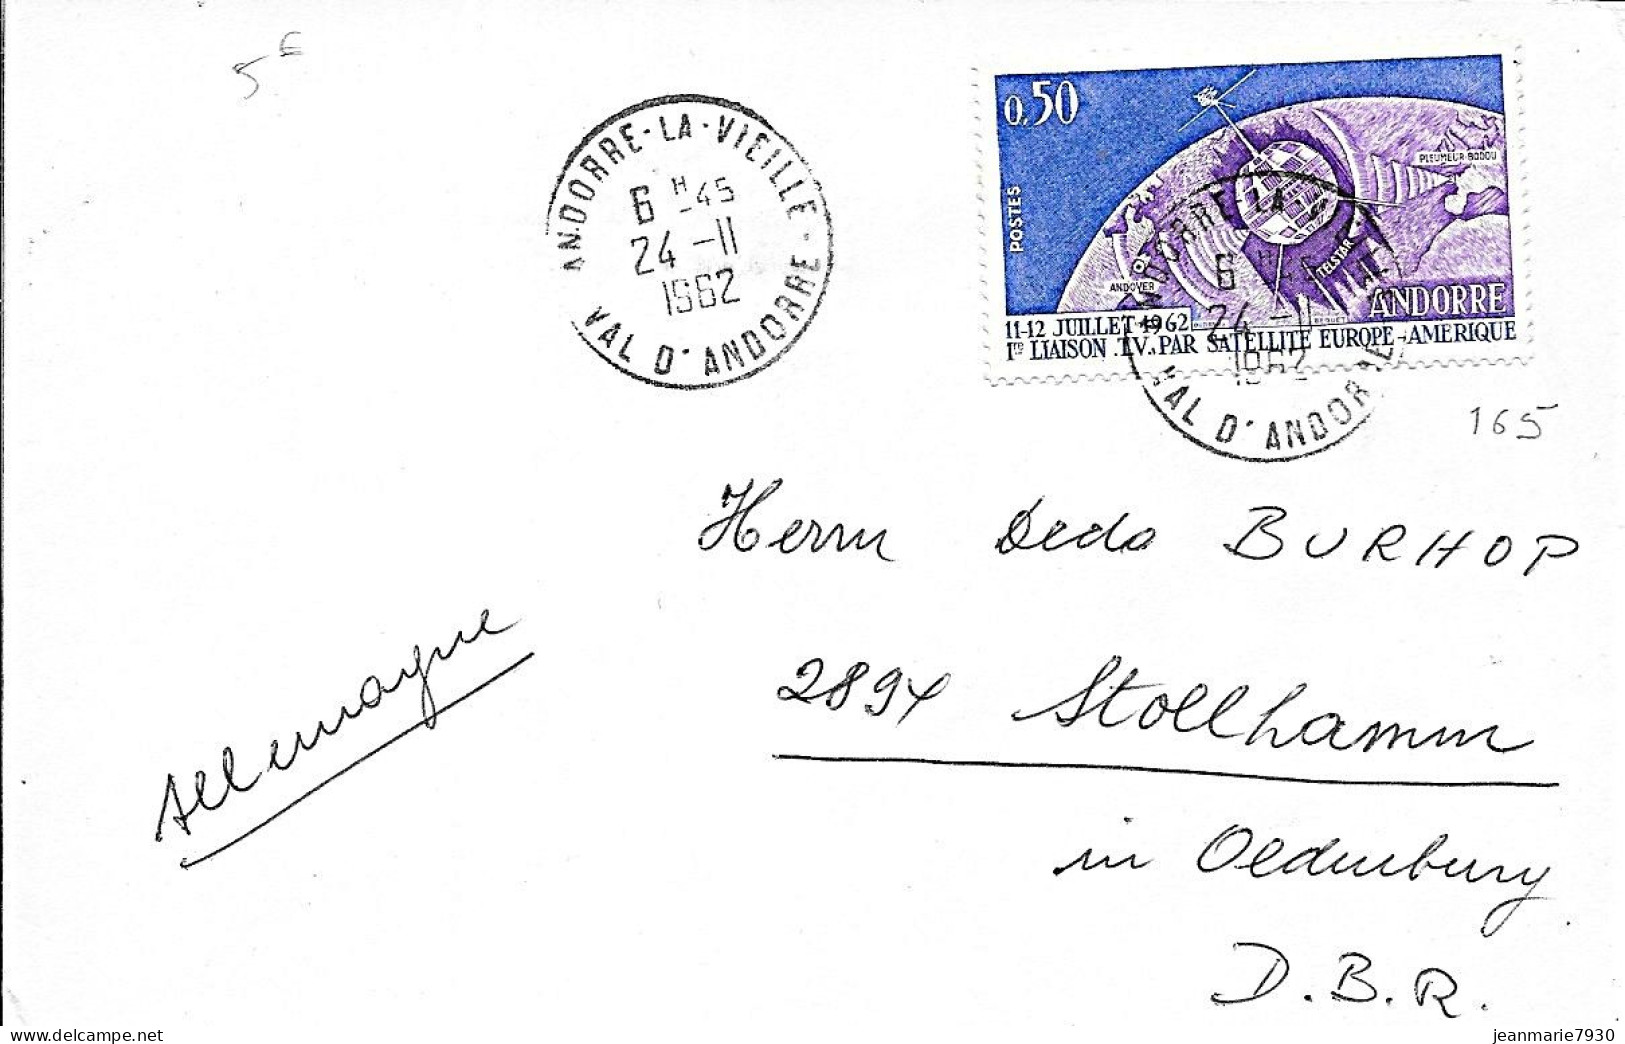 5 €
ANDORRE-LA-VIEILLE
6 H -45
24 -11
1962
VAL D'ANDORRE
0,50
POSTES
PLEUMEUR-BODOU
TELSTAR
ANDOVER
ANDORRE
11-12 JUILLET 1962
1re LIAISON T.V. PAR SATELLITE EUROPE-AMERIQUE
ANDORRE-LA-VIEILLE
6 H -45
24 -11
1962
VAL D'ANDORRE
165
Herrn Dedo BURHOP
2894 Stollhamm
in Oldenburg
D.B.R.
Allemagne
jeanmarie7930